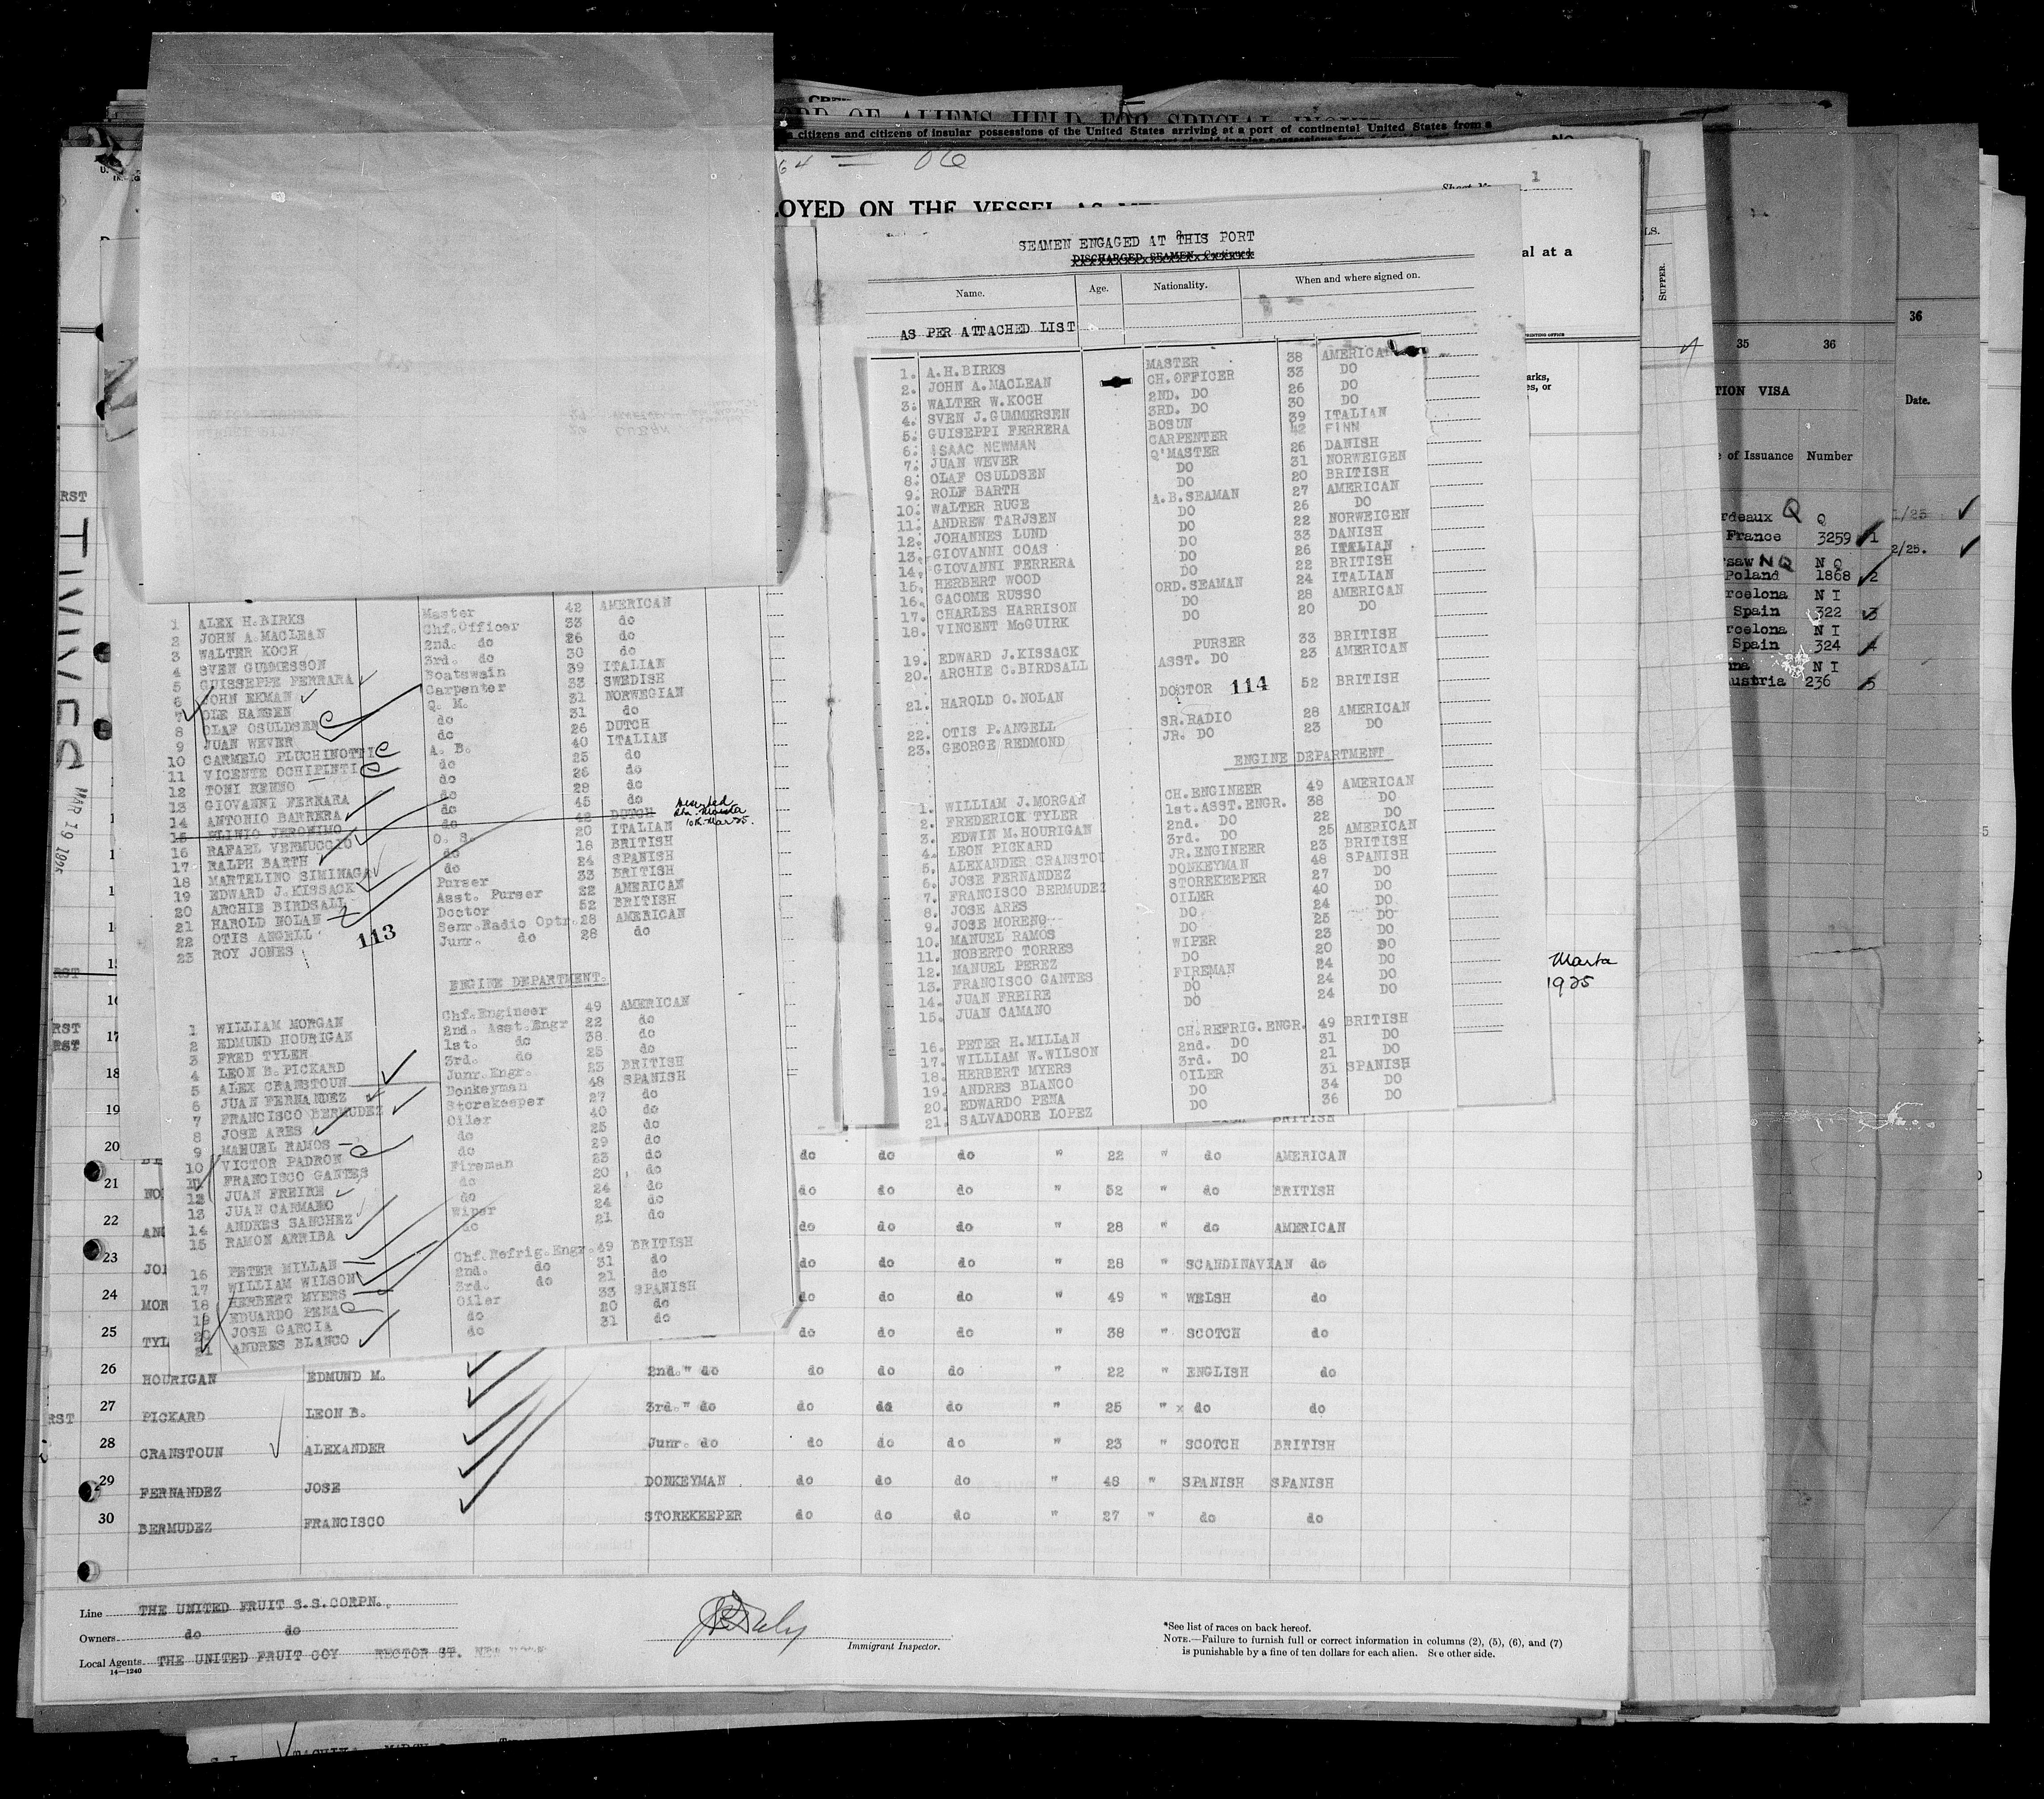 RECORD OF ALIENS HELD FOR SPECIAL
citizens and citizens of insular possessions of the United States arriving at a port of continental United States from a
OYED ON THE VESSEL AS
1
al at a
SUPPER.
SEAMEN ENGAGED AT THIS PORT
DISCHARGED SEAMEN Continued
Name. Age. Nationality. When and where signed on.
AS PER ATTACHED LIST
1. A.H.BIRKS MASTER 38 AMERICAN
2. JOHN A.MACLEAN CH.OFFICER 33 DO
3. WALTER W.KOCH 2ND. DO 26 DO
4. SVEN J.GUMMERSEN 3RD. DO 30 DO
5. GUISEPPI FERRERA BOSUN 39 ITALIAN
6. ISAAC NEWMAN CARPENTER 42 FINN
7. JUAN WEVER Q'MASTER 26 DANISH
8. OLAF OSULDSEN DO 31 NORWEIGEN
9. ROLF BARTH DO 20 BRITISH
10. WALTER RUGE A.B.SEAMAN 27 AMERICAN
11. ANDREW TARJSEN DO 26 DO
12. JOHANNES LUND DO 22 NORWEIGEN
13. GIOVANNI COAS DO 33 DANISH
14. GIOVANNI FERRERA DO 26 ITALIAN
15. HERBERT WOOD DO 22 BRITISH
16. GACOME RUSSO ORD.SEAMAN 24 ITALIAN
17. CHARLES HARRISON DO 28 AMERICAN
18. VINCENT McGUIRK DO 20 DO
19. EDWARD J.KISSACK PURSER 33 BRITISH
20. ARCHIE C.BIRDSALL ASST. DO 23 AMERICAN
21. HAROLD O.NOLAN DOCTOR 114 52 BRITISH
22. OTIS P.ANGELL SR.RADIO 28 AMERICAN
23. GEORGE REDMOND JR. DO 23 DO
ENGINE DEPARTMENT
1. WILLIAM J.MORGAN CH.ENGINEER 49 AMERICAN
2. FREDERICK TYLER 1st.ASST.ENGR. 38 DO
3. EDWIN M.HOURIGAN 2nd. DO 22 DO
4. LEON PICKARD 3rd. DO 25 AMERICAN
5. ALEXANDER CRANSTOU JR.ENGINEER 23 BRITISH
6. JOSE FERNANDEZ DONKEYMAN 48 SPANISH
7. FRANCISCO BERMUDEZ STOREKEEPER 27 DO
8. JOSE ARES OILER 40 DO
9. JOSE MORENO DO 24 DO
10. MANUEL RAMOS DO 25 DO
11. NOBERTO TORRES WIPER 23 DO
12. MANUEL PEREZ DO 20 DO
13. FRANCISCO GANTES FIREMAN 24 DO
14. JUAN FREIRE DO 24 DO
15. JUAN CAMANO DO 24 DO
16. PETER H.MILLAN CH.REFRIG.ENGR. 49 BRITISH
17. WILLIAM W.WILSON 2nd. DO 31 DO
18. HERBERT MYERS 3rd. DO 21 DO
19. ANDRES BLANCO OILER 31 SPANISH
20. EDWARDO PENA DO 34 DO
21. SALVADORE LOPEZ DO 36 DO
Marta
1925
1 ALEX H.BIRKS Master 42 AMERICAN
2 JOHN A.MACLEAN Chf.Officer 33 do
3 WALTER KOCH 2nd. do 26 do
4 SVEN GUMMESSON 3rd. do 30 do
5 GUISSEPPE FERRARA Boatswain 39 ITALIAN
6 JOHN EKMAN Carpenter 33 SWEDISH
7 OLE HANSEN Q. M. 31 NORWEGIAN
8 OLAF OSULDSEN do 31 do
9 JUAN WEVER do 26 DUTCH
10 CARMELO PLUCHINOTTI A. B. 40 ITALIAN
11 VICENTE OCHIPINTI do 25 do
12 TONI RENNO do 26 do
13 GIOVANNI FERRARA do 29 do
14 ANTONIO BARRERA do 45 do
15 PLINIO JERONIMO do 42 DUTCH
16 RAFAEL VERMUCCIO O. S. 20 ITALIAN
17 RALPH BARTH do 18 BRITISH
18 MARTELINO SIMINAGA do 24 SPANISH
19 EDWARD J.KISSACK Purser 33 BRITISH
20 ARCHIE BIRDSALL Asst. Purser 22 AMERICAN
21 HAROLD NOLAN Doctor 52 BRITISH
22 OTIS ANGELL Senr.Radio Optr. 28 AMERICAN
23 ROY JONES Junr. do 28 do
113
ENGINE DEPARTMENT.
1 WILLIAM MORGAN Chf.Engineer 49 AMERICAN
2 EDMUND HOURIGAN 2nd. Asst.Engr 22 do
3 FRED TYLER 1st. do 38 do
4 LEON B.PICKARD 3rd. do 25 do
5 ALEX CRANSTOUN Junr.Engr. 23 BRITISH
6 JUAN FERNANDEZ Donkeyman 48 SPANISH
7 FRANCISCO BERMUDEZ Storekeeper 27 do
8 JOSE ARES Oiler 40 do
9 MANUEL RAMOS do 25 do
10 VICTOR PADRON do 29 do
11 FRANCISCO GANTES Fireman 23 do
12 JUAN FREIRE do 20 do
13 JUAN CARMANO do 24 do
14 ANDRES SANCHEZ Wiper 24 do
15 RAMON ARRIBA do 21 do
16 PETER MILLAN Chf.Refrig.Engr. 49 BRITISH
17 WILLIAM WILSON 2nd. do 31 do
18 HERBERT MYERS 3rd. do 21 do
19 EDUARDO PENA Oiler 33 SPANISH
20 JOSE GARCIA do 20 do
21 ANDRES BLANCO do 31 do
MAR 19 1925
20 do do do " 22 " do AMERICAN
21 NO do do do " 52 " do BRITISH
22 AN do do do " 28 " do AMERICAN
23 JO do do do " 28 " SCANDINAVIAN do
24 MOR do do do " 49 " WELSH do
25 TYL do do do " 38 " SCOTCH do
26 HOURIGAN EDMUND M. 2nd." do do do do " 22 " ENGLISH do
27 PICKARD LEON B. 3rd." do do do do " 25 " x do do
28 CRANSTOUN ALEXANDER Junr. do do do do " 23 " SCOTCH BRITISH
29 FERNANDEZ JOSE DONKEYMAN do do do " 48 " SPANISH SPANISH
30 BERMUDEZ FRANCISCO STOREKEEPER do do do " 27 " do do
Line THE UNITED FRUIT S.S.CORPN.
Owners do do
Local Agents THE UNITED FRUIT COY RECTOR ST.
14—1240
Immigrant Inspector.
*See list of races on back hereof.
NOTE.—Failure to furnish full or correct information in columns (2), (5), (6), and (7)
is punishable by a fine of ten dollars for each alien. See other side.
35 36
TION VISA
of Issuance Number
rdeaux Q Q
France 3259 1
rsaw NQ N Q
Poland 1868 2
rcelona N I
Spain 322 3
rcelona N I
Spain 324 4
nna N I
Austria 236 5
36
Date.
1/25
2/25.